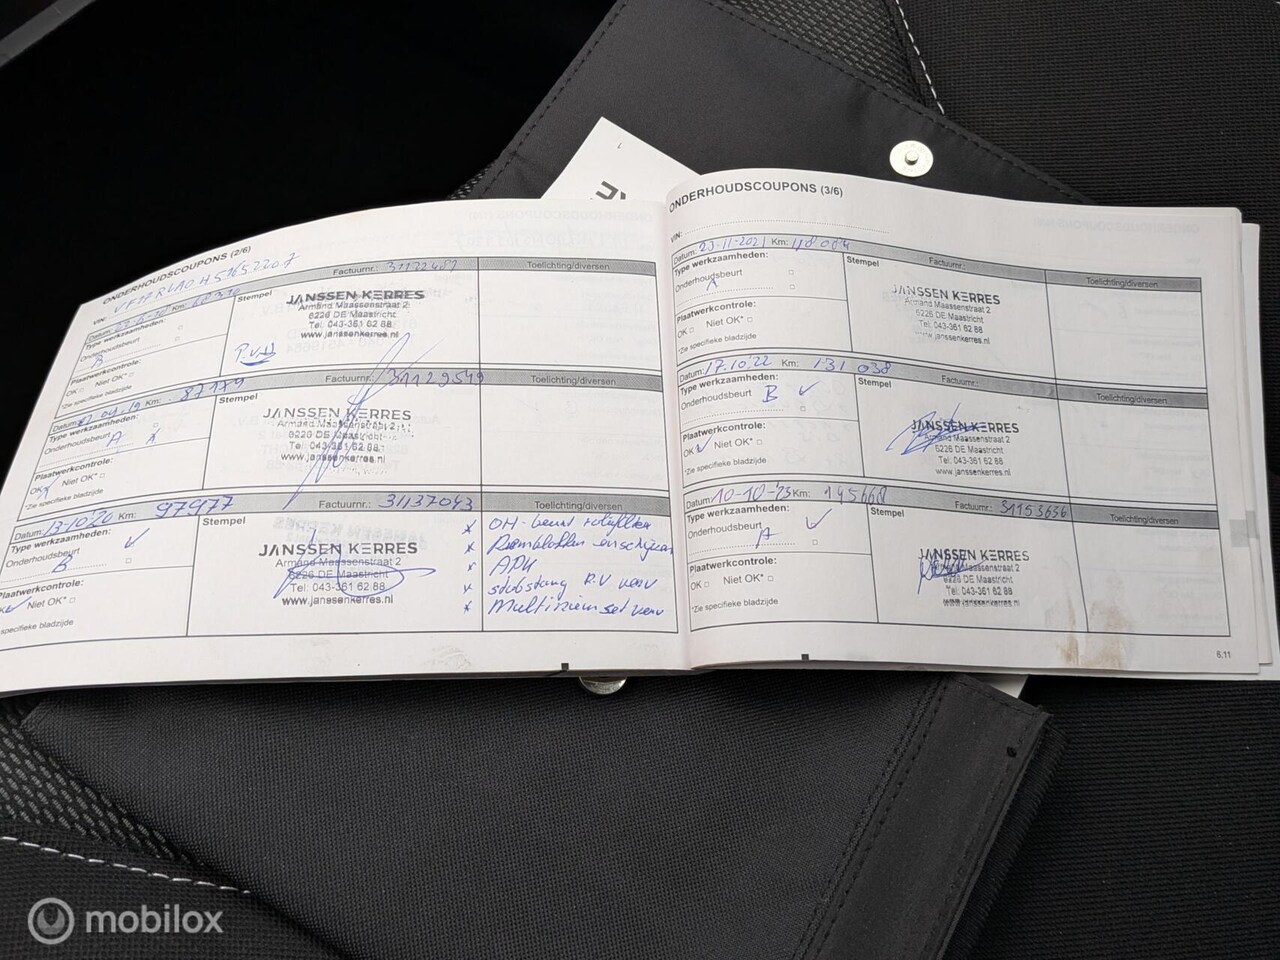 ONDERHOUDSCOUPONS (2/6)
VIN:
Datum: Km: Factuurnr.: Toelichting/diversen
Type werkzaamheden:
Onderhoudsbeurt
Stempel
JANSSEN KERRES
Armand Maassenstraat 2
6226 DE Maastricht
Tel. 043-361 62 88
www.janssenkerres.nl
Plaatwerkcontrole:
OK Niet OK*
*Zie specifieke bladzijde
Datum: 04-19 Km: 87179 Factuurnr.: 31129549 Toelichting/diversen
Type werkzaamheden:
Onderhoudsbeurt
A
Stempel
JANSSEN KERRES
Armand Maassenstraat 2
6226 DE Maastricht
Tel. 043-361 62 88
Plaatwerkcontrole:
OK Niet OK*
*Zie specifieke bladzijde
Datum: 13-10'20 Km: 97977 Factuurnr.: 31137043 Toelichting/diversen
Type werkzaamheden:
Onderhoudsbeurt
B
Stempel
JANSSEN KERRES
Armand Maassenstraat 2
6226 DE Maastricht
Tel. 043-361 62 88
www.janssenkerres.nl
x OH-beurt
x Remblokken en schijven
x APK
x stabstang R.V verv
x Multiriem set verv
Plaatwerkcontrole:
Niet OK*
specifieke bladzijde
ONDERHOUDSCOUPONS (3/6)
VIN:
Datum: -11-2021 Km: Toelichting/diversen
Type werkzaamheden:
Onderhoudsbeurt
Stempel
JANSSEN KERRES
Armand Maassenstraat 2
6226 DE Maastricht
Tel. 043-361 62 88
www.janssenkerres.nl
Plaatwerkcontrole:
OK Niet OK*
*Zie specifieke bladzijde
Datum: 17.10.'22 Km: 131 038 Toelichting/diversen
Type werkzaamheden:
Onderhoudsbeurt B
Stempel
JANSSEN KERRES
Armand Maassenstraat 2
6226 DE Maastricht
Tel. 043-361 62 88
www.janssenkerres.nl
Plaatwerkcontrole:
OK Niet OK*
*Zie specifieke bladzijde
Datum: 10-10-'23 Km: 145668 Factuurnr.: 31153636 Toelichting/diversen
Type werkzaamheden:
Onderhoudsbeurt
A
Stempel
JANSSEN KERRES
Armand Maassenstraat 2
6226 DE Maastricht
Tel. 043-361 62 88
www.janssenkerres.nl
Plaatwerkcontrole:
OK Niet OK*
*Zie specifieke bladzijde
6.11
mobilox